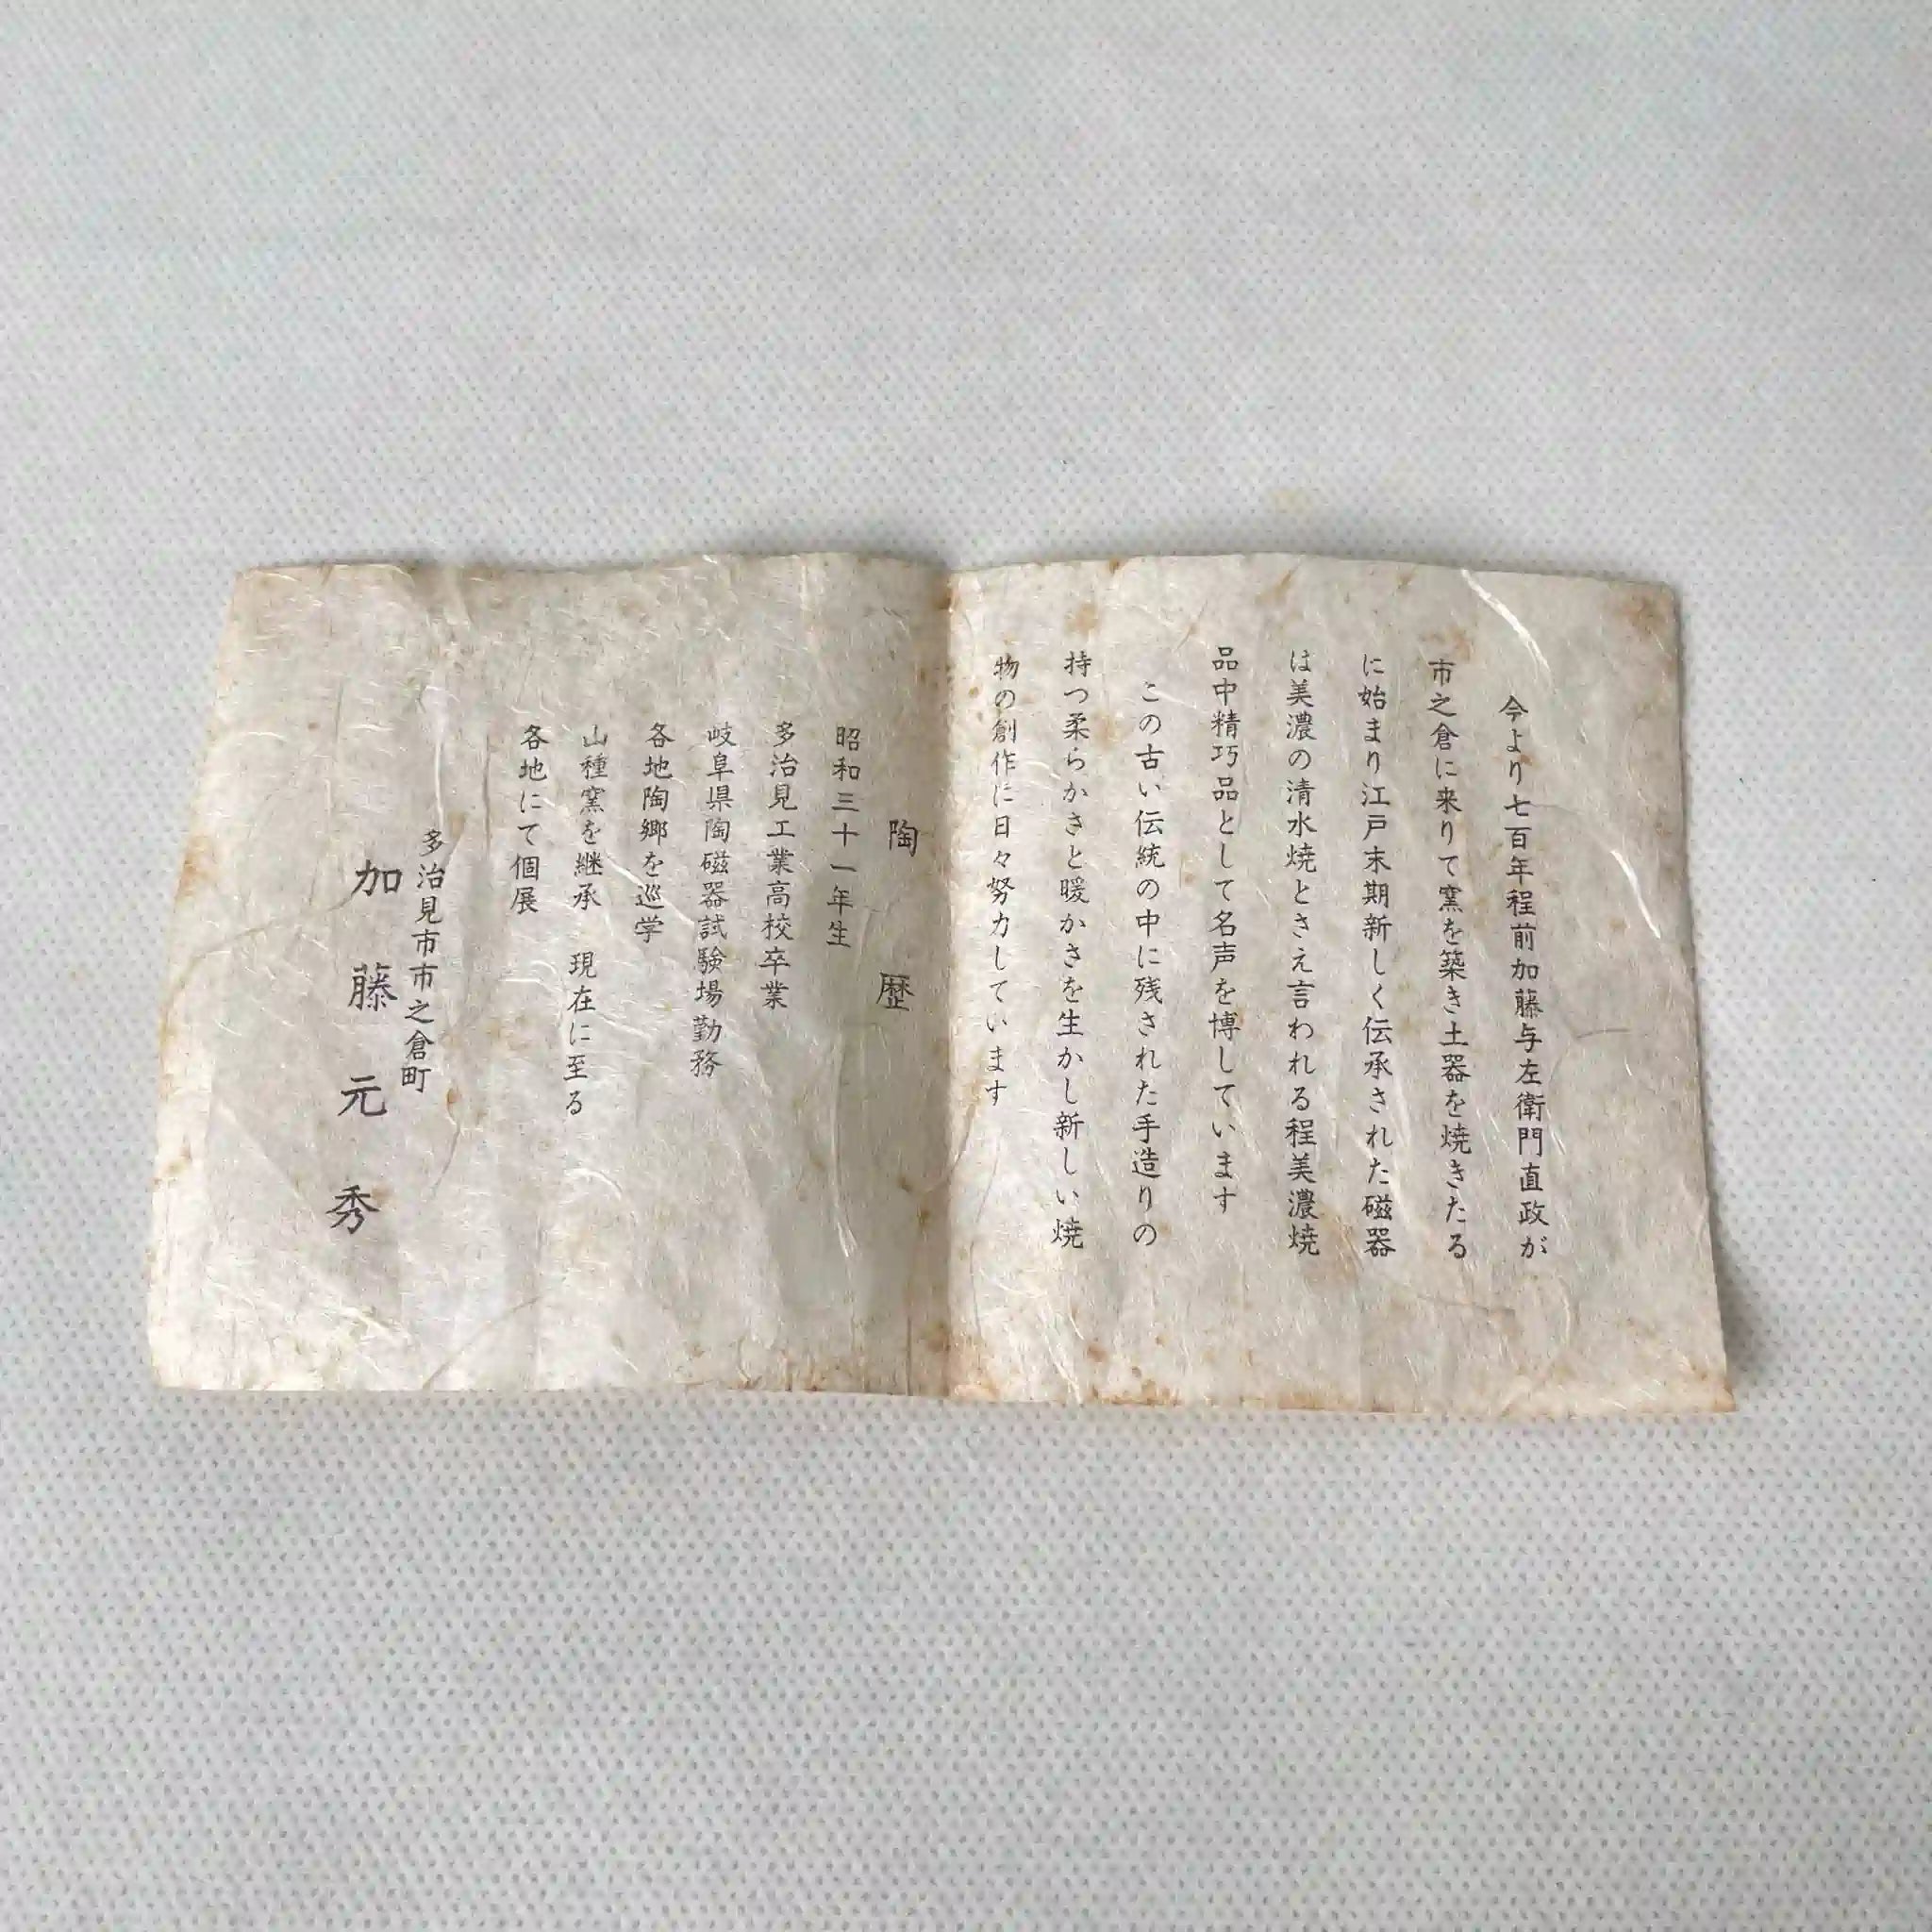 今より七百年程前加藤与左衛門直政が
市之倉に来りて窯を築き土器を焼きたる
に始まり江戸末期新しく伝承された磁器
は美濃の清水焼とさえ言われる程美濃焼
品中精巧品として名声を博しています
この古い伝統の中に残された手造りの
持つ柔らかさと暖かさを生かし新しい焼
物の創作に日々努力しています
陶歴
昭和三十一年生
多治見工業高校卒業
岐阜県陶磁器試験場勤務
各地陶郷を巡学
山種窯を継承 現在に至る
各地にて個展
多治見市市之倉町
加藤元秀